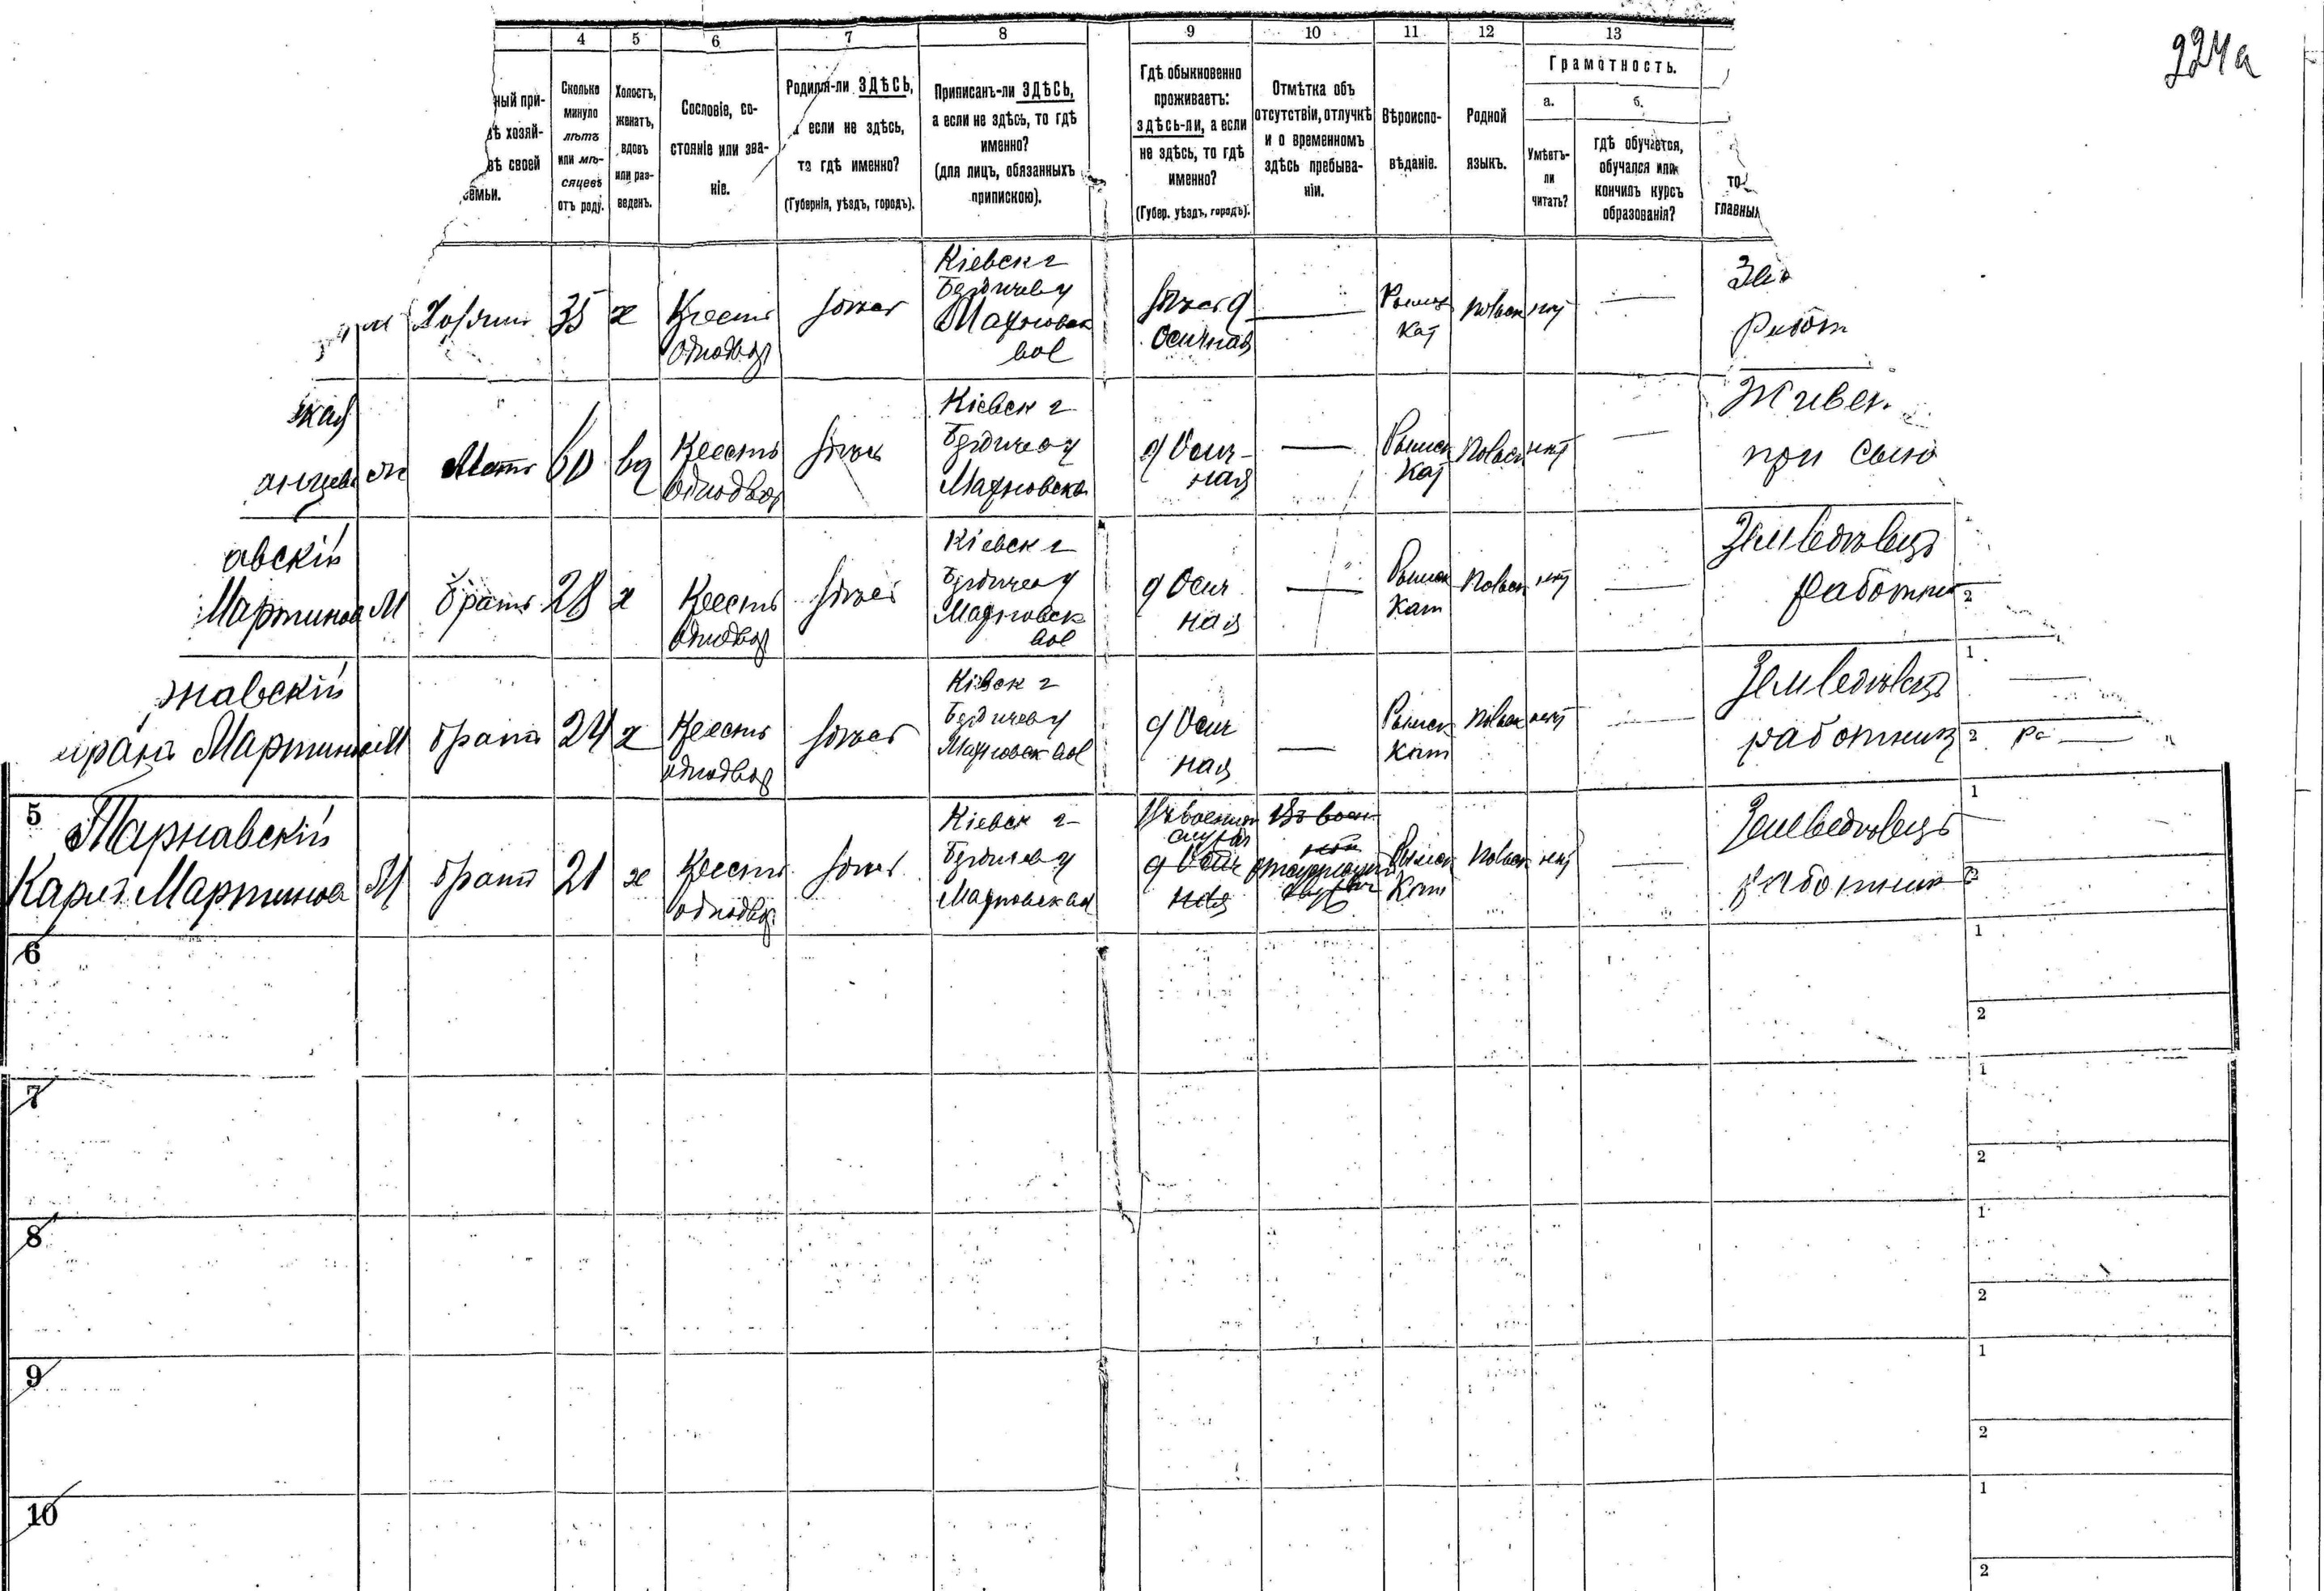 224а
4 5 6 7 8 9 10 11 12 13
ный при-
вѣ хозяй-
вѣ своей
семьи.
Сколько
минуло
лѣтъ
или мѣ-
сяцевъ
отъ роду.
Холостъ,
женатъ,
вдовъ
или раз-
веденъ.
Сословіе, со-
стояніе или зва-
ніе.
Родился-ли ЗДѢСЬ,
а если не здѣсь,
то гдѣ именно?
(Губернія, уѣздъ, городъ).
Приписанъ-ли ЗДѢСЬ,
а если не здѣсь, то гдѣ
именно?
(для лицъ, обязанныхъ
припискою).
Гдѣ обыкновенно
проживаетъ:
здѣсь-ли, а если
не здѣсь, то гдѣ
именно?
(Губер. уѣздъ, городъ).
Отмѣтка объ
отсутствіи, отлучкѣ
и о временномъ
здѣсь пребыва-
ніи.
Вѣроиспо-
вѣданіе.
Родной
языкъ.
Грамотность.
а.
Умѣетъ-
ли
читать?
б.
гдѣ обучается,
обучался или
кончилъ курсъ
образованія?
то
главный
м
Хозяин
35
х
Крестъ
однодвор
здѣсь
Кіевск г
Бердичев у
Махновск
вол
здѣсь д
Осичная
—
Римск
Кат
Польск
нѣт
—
Зем
Работ
кая
ж
Мать
60
вд
Крестъ
однодвор
здѣсь
Кіевск г
Бердичев у
Махновска
д Осич-
ная
—
Римск
Кат
Польск
нѣт
—
Живет
при сыно
авскій
Мартинов
М
братъ
28
х
Крестъ
однодвор
здѣсь
Кіевск г
Бердичев у
Махновск
вол
д Осич
ная
—
Римск
Кат
Польск
нѣт
—
Земледѣлецъ
работник
2
навскій
Мартинов
М
братъ
24
х
Крестъ
однодвор
здѣсь
Кіевск г
Бердичев у
Махновск вол
д Осич
ная
—
Римск
Кат
Польск
нѣт
—
Земледѣлецъ
работник
1 —
2 Ра —
5
Тарнавскій
Карлъ Мартинов
М
братъ
21
х
Крестъ
однодвор
здѣсь
Кіевск г
Бердичев у
Махновск вол
На военной
службѣ
д Осич
ная
На воен
Римск
Кат
Польск
нѣт
—
Земледѣлецъ
работник
1
2
6
1
2
7
1
2
8
1
2
9
1
2
10
1
2